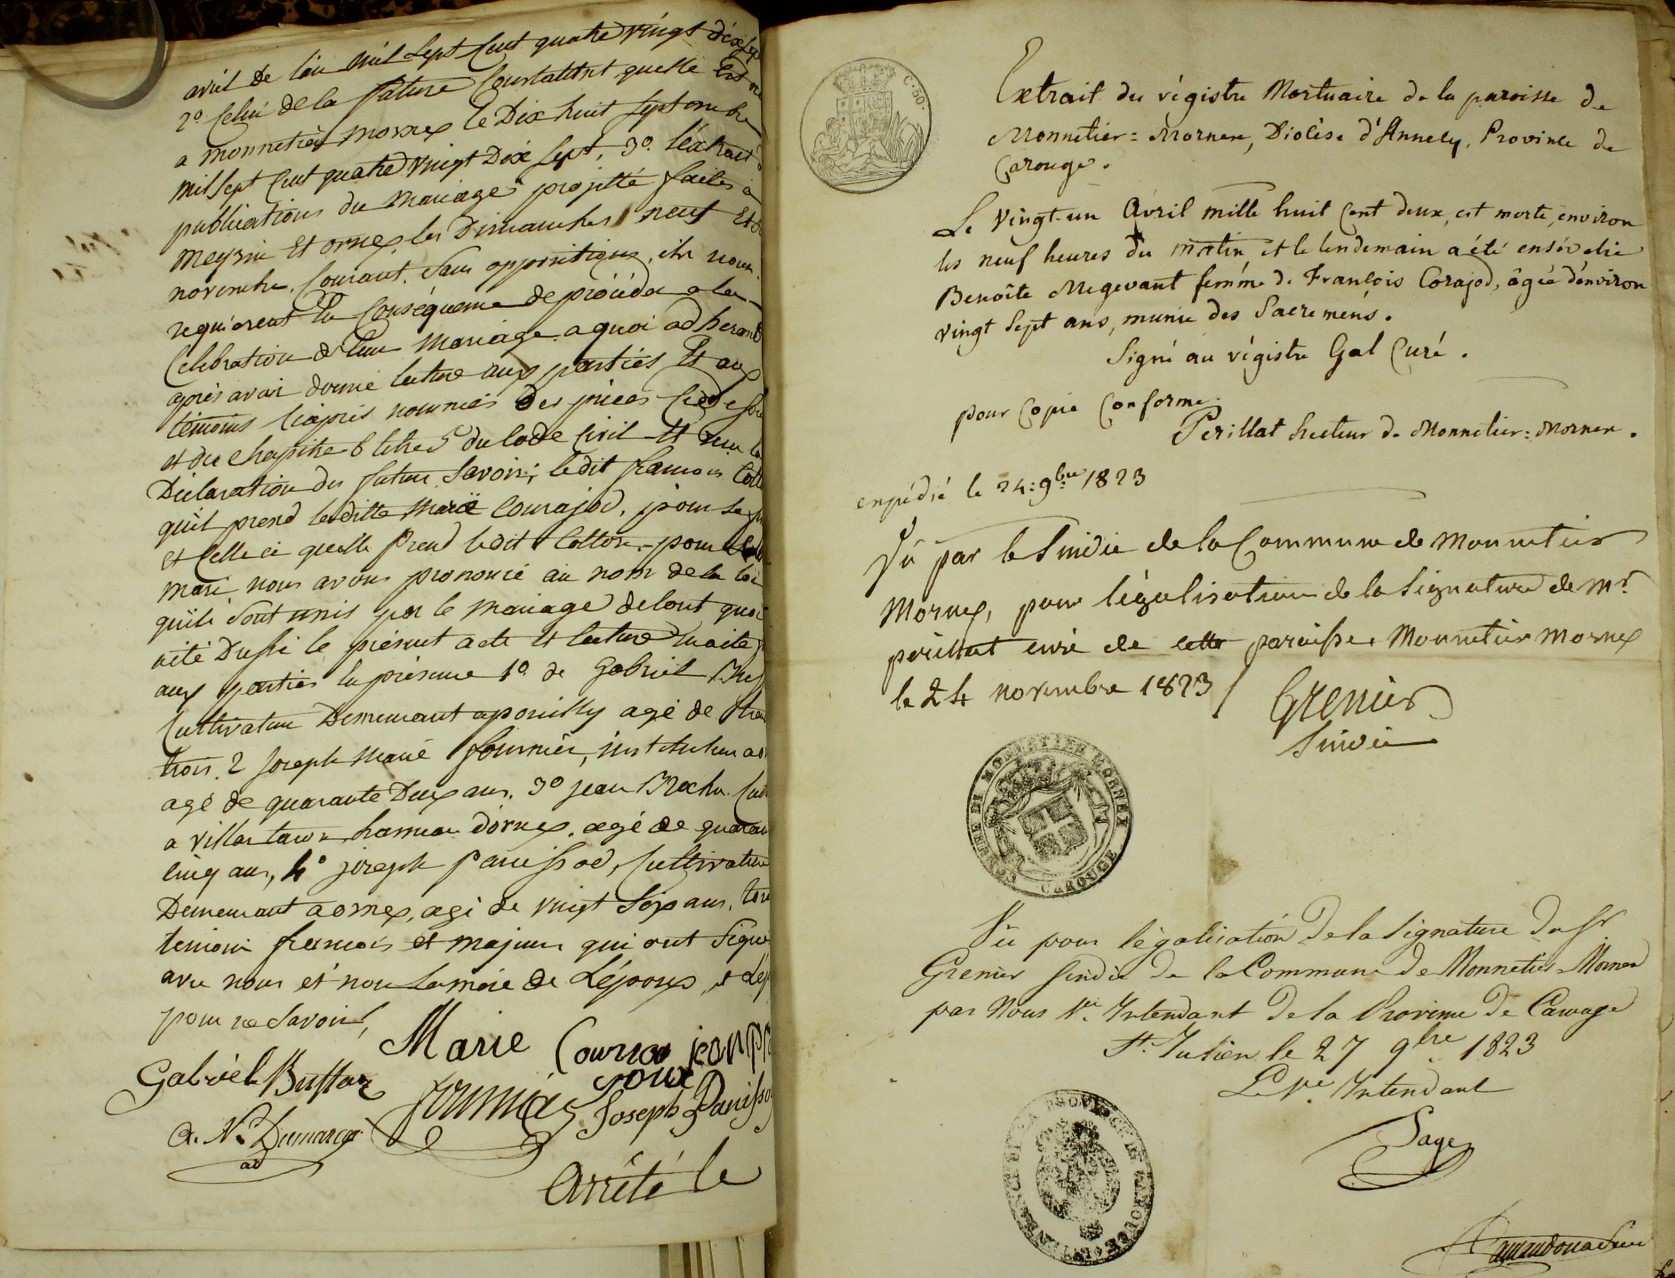 avril de l'an mil sept cent quatre vingt dix sept
2º celui de la future constatant quelle est née
a monnetier mornex le Dix huit septembre
mil sept cent quatre vingt Dix sept, 3º l'extrait
publications du mariage projetté faites à
meyrin Et ornex, les Dimanches neuf Et
novembre courant. sans oppositions, ils nous
requierent En conséquence de procéder a la
Celebration de leur mariage a quoi adherant
après avoir donné lecture aux parties Et aux
témoins ciaprès nommés des pièces ci desus
et du chapitre 6 titre 5 du Code Civil et vu la
Déclaration des future savoir; ledit francois
qu'il prend la ditte Marie Courajod, pour
et celle ci quelle prend ledit Colton pour
mari, nous avons prononcé au nom de la loi
qu'ils sont unis par le mariage de tout quoi
a été Dussé le présent acte et lecture faite
aux parties En présence 1º de Gabriel
Cultivateur Demeurant a pouilly agé de
trois. 2 Joseph Marie fournier, instituteur
agé de quarante Deux ans. 3º jean
a villard hameau d'ornex, agé de
cinq ans, 4º joseph panissod, Cultivateur
Demeurant a ornex, agé de vingt six ans, tous
temoins francois et majeurs qui ont signé
avec nous et non la mère de L'épouse, et
pour ne Savoir,
Marie Courajod jean
Gabriel Buffaz fournier Joseph Panissod
a. N. Dumarest
ad
Arrêté le
C. 50.
Extrait du régistre Mortuaire de la paroisse de
Monnetier = Mornex, Diocèse d'Annecy, Province de
Carouge.
Le vingt-un Avril mille huit cent deux, est morte, environ
les neuf heures du matin, et le lendemain a été ensévelie
Benoîte Megevant femme de François Corajod, âgée d'environ
vingt sept ans, munie des Sacremens.
Signé au régistre Gal Curé.
pour Copie Conforme.
Perillat Recteur de Monnetier = Mornex.
expédié le 24: 9bre 1823
Vû par le Sindic de la Commune de Monnetier
Mornex, pour légalisation de la Signature de mr
perillat curé de cette paroisse Monnetier Mornex
le 24 novembre 1823
Grenier
Sindic
COMUNE DI MONETIER MORNEX
CAROUGE
Vu pour légalisation De la Signature Du Sr
Grenier Sindic De la Commune De Monnetier Mornex
par Nous Vce Intendant De la Province De Carouge
St. Julien le 27 9bre 1823
Le Vce Intendant
Sage